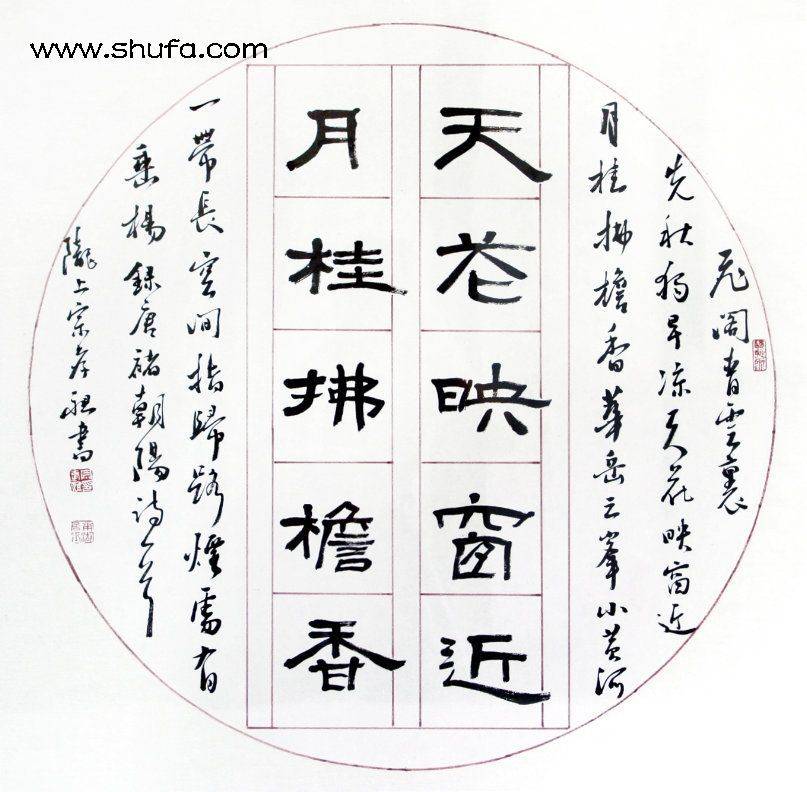 www.shufa.com
飛閣青雲裏
先秋獨早涼天花映窗近
月桂拂檐香華岳三峯小黄河
天花映窗近
月桂拂檐香
一帶長空間指歸路煙處有
垂楊録唐褚朝陽詩一首
隴上宗孝祖書